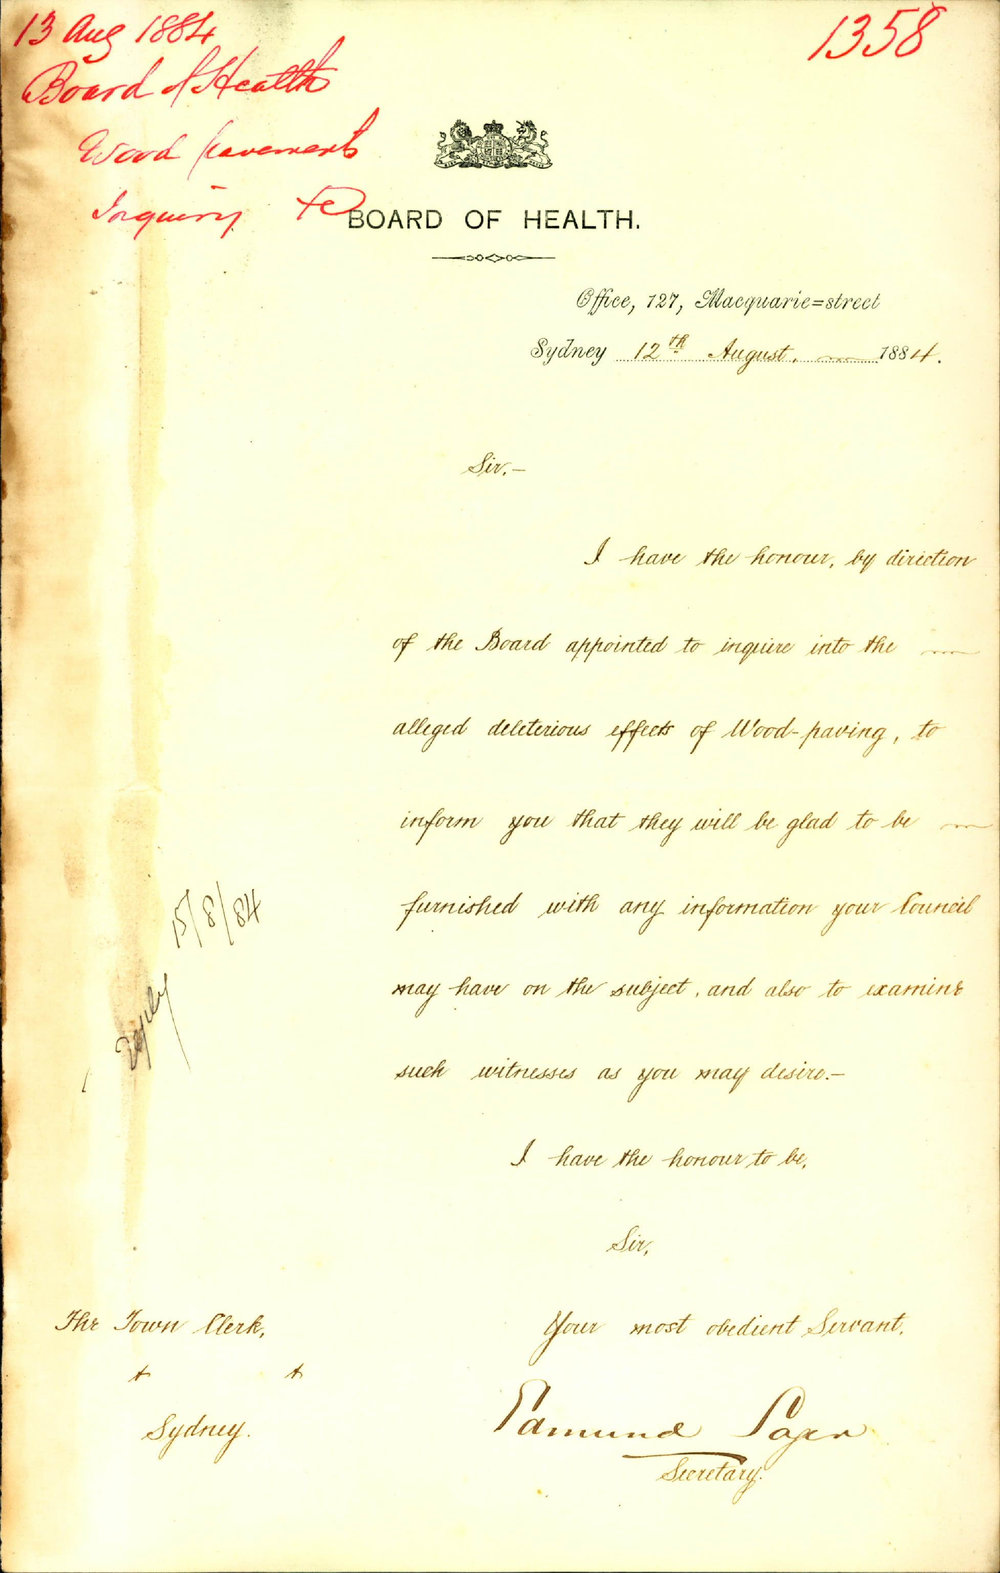 13 Aug 1884
1358
Board of Health
Wood pavements
Inquiry re
BOARD OF HEALTH.
Office, 127, Macquarie=street
Sydney 12th August. 1884.
Sir,-
I have the honour, by direction
of the Board appointed to inquire into the
alleged deleterious effects of Wood-paving, to
inform you that they will be glad to be
furnished with any information your Council
may have on the subject, and also to examine
such witnesses as you may desire.-
15/8/84
reply
I have the honour to be,
Sir,
Your most obedient Servant,
Edmund Sager
Secretary.
The Town Clerk,
Sydney.